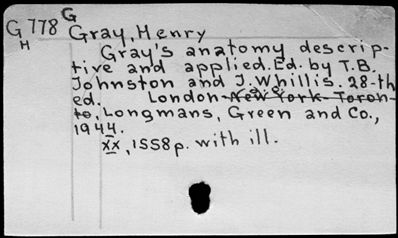 G
G 778 Gray, Henry
H
Gray's anatomy descrip-
tive and applied. Ed. by T.B.
Johnston and J. Whillis. 28-th
ed. London-New York-Toron-
to, Longmans, Green and Co.,
1944.
xx, 1558 p. with ill.